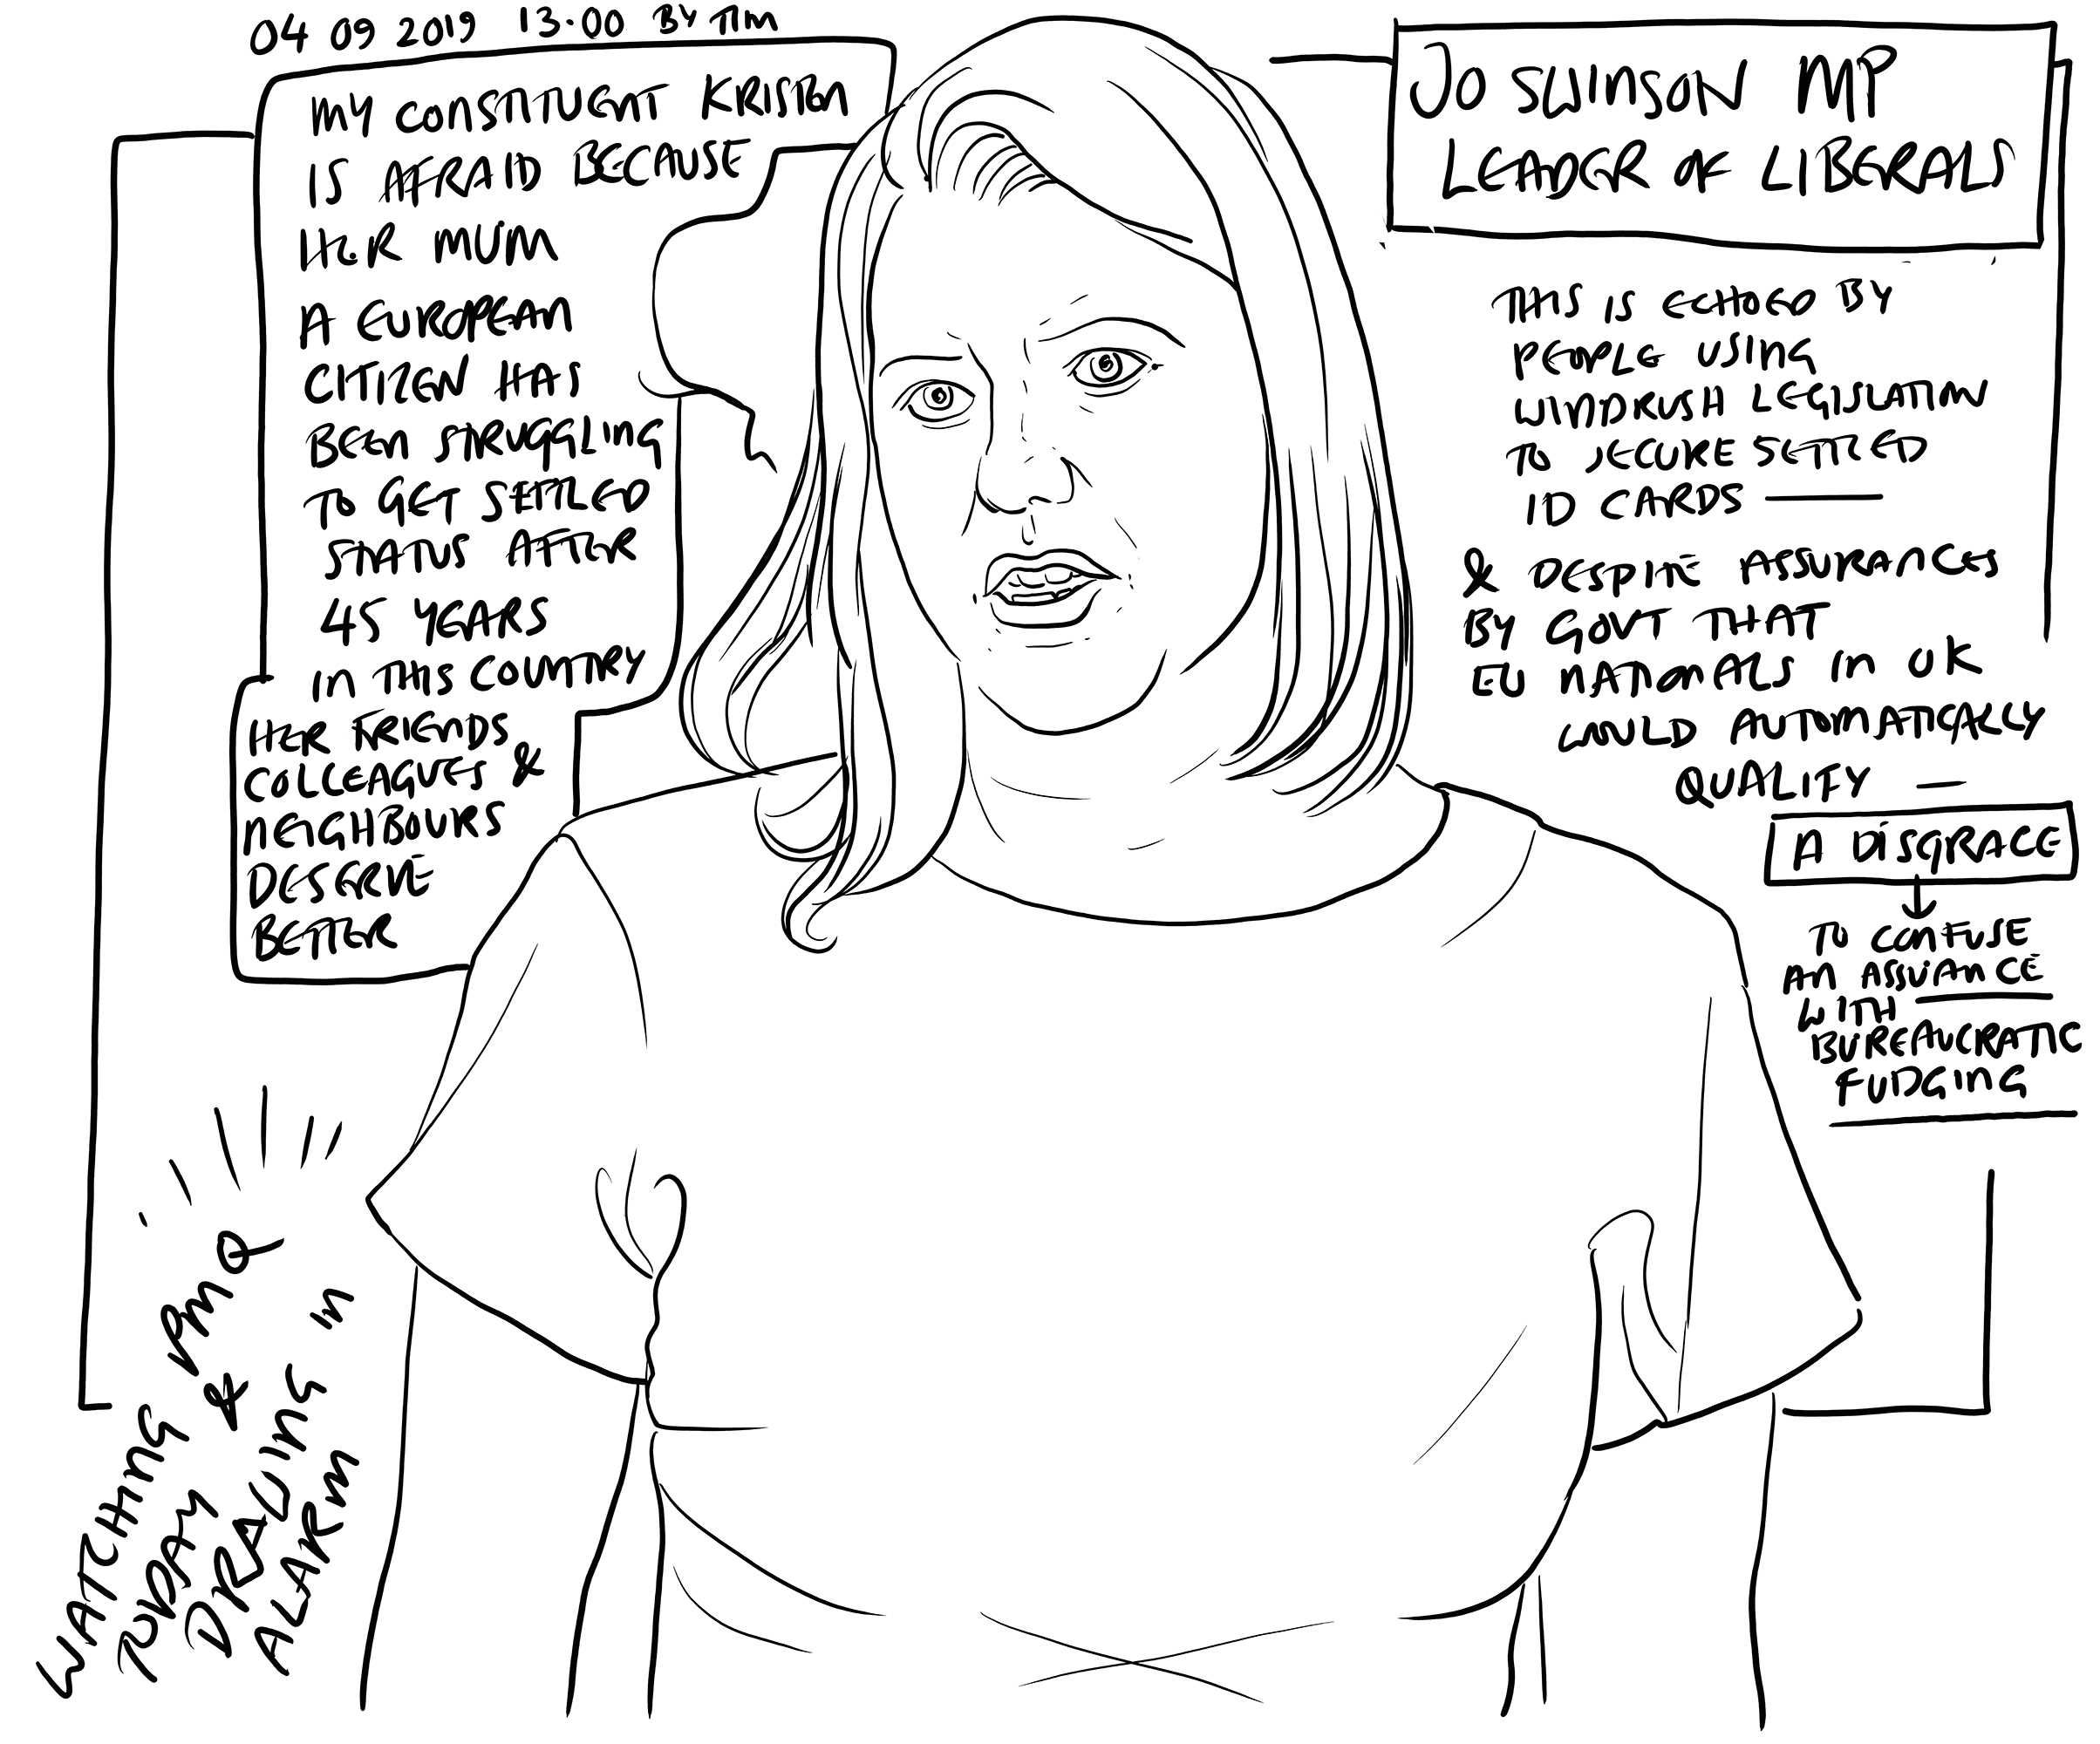 04 09 2019 13:00 BY TIM
MY CONSTITUENT KRISTON
IS AFRAID BECAUSE
HER MUM
A EUROPEAN
CITIZEN HAS
BEEN STRUGGLING
TO GET SETTLED
STATUS AFTER
45 YEARS
IN THIS COUNTRY
HER FRIENDS
COLLEAGUES &
NEIGHBOURS
DESERVE
BETTER
JO SWINSON MP
LEADER OF LIBERALS
THIS IS ECHOED BY
PEOPLE USING
WINDRUSH LEGISLATION
TO SECURE SETTLED
ID CARDS
& DESPITE ASSURANCES
BY GOVT THAT
EU NATIONALS IN UK
WOULD AUTOMATICALLY
QUALIFY
A DISGRACE
TO CONFUSE
AN
WITH
BUREAUCRATIC
FUDGING
WATCHING PMQ
TODAY &
DRAWING IN
ALARM